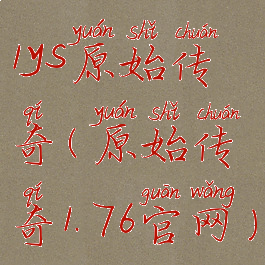 yuán shǐ chuán
lys原始传
qí yuán shǐ chuán
奇(原始传
qí guān wǎng
奇1.76官网)